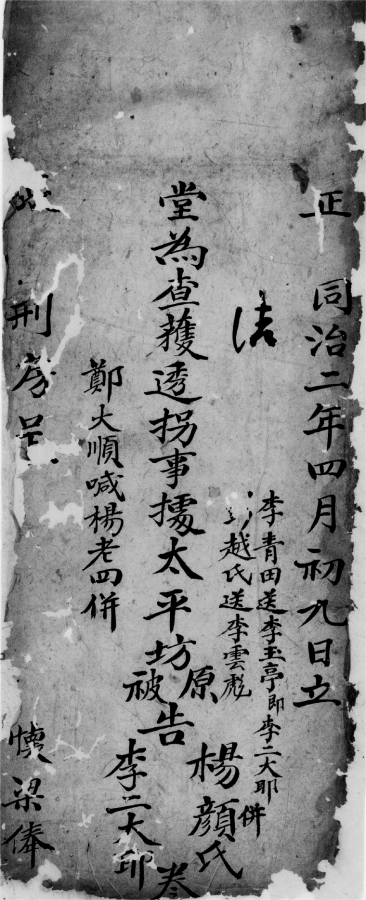 正 同治二年四月初九日立
李青田送李玉亭即李二大耶併
越氏送李雲彪
堂為查獲透拐事據太平坊原被告楊顏氏李二大卬卷
鄭大順喊楊老四併
刑房呈
懷梁俸